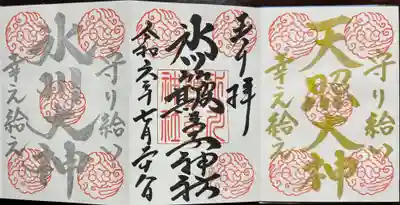 守り給い
天照大神
幸え給え
奉拝
氷川 神社
令和六年七月
守り給い
氷川大神
幸え給え